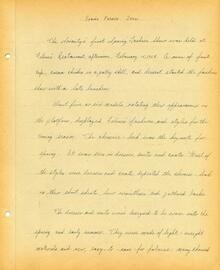 The Sorority's first Spring Fashion Show was held at
Restaurant afternoon, February
cup, cream chicken in a patty shell, and dessert started the fashion
show with a late luncheon.
About five or six models, rotating their appearance on
the platform, displayed fashions and styles for the
coming season. The chemise look was the keynote for
spring. It was seen in dresses, suits and coats. Most of
the styles were dresses and coats
in their short skirts, low waistlines and jackets
The dresses and suits were designed to be worn into the
spring and early summer. They were made of light-weight
materials and new, easy-to-care for fabrics. many showed